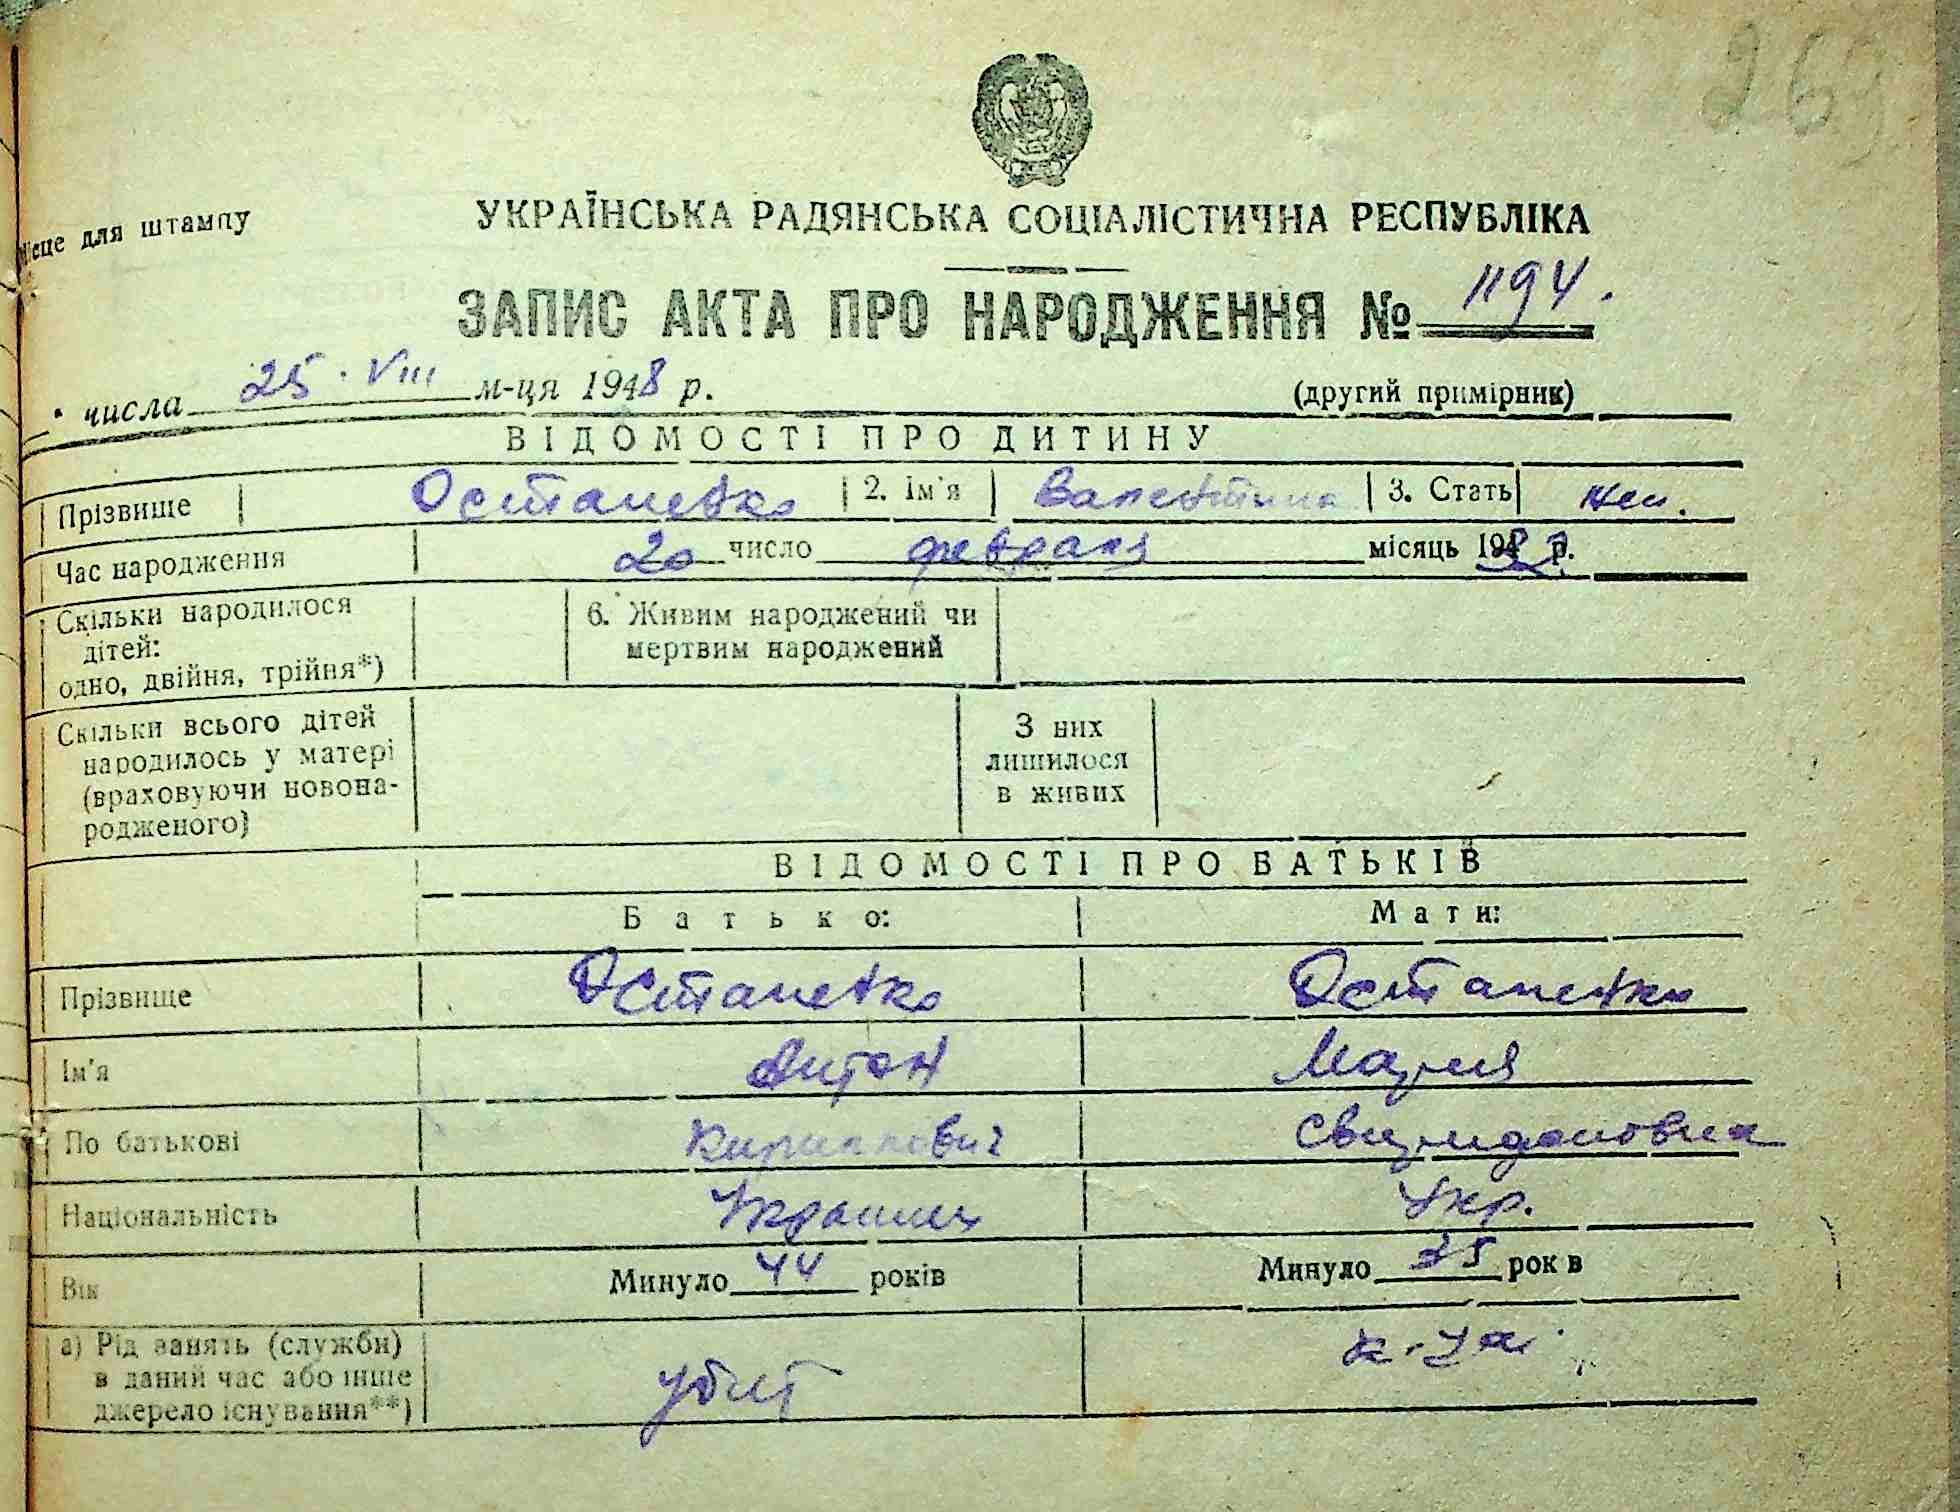 269
Місце для штампу
УКРАЇНСЬКА РАДЯНСЬКА СОЦІАЛІСТИЧНА РЕСПУБЛІКА
ЗАПИС АКТА ПРО НАРОДЖЕННЯ № 1194.
числа 25. VIII м-ця 1948 р. (другий примірник)
ВІДОМОСТІ ПРО ДИТИНУ
Прізвище Остапенко 2. Ім'я Валентина 3. Стать жен.
Час народження 20 число февраля місяць 19 р.
Скільки народилося дітей: одно, двійня, трійня*) 6. Живим народжений чи мертвим народжений
Скільки всього дітей народилось у матері (враховуючи новонародженого) З них лишилося в живих
ВІДОМОСТІ ПРО БАТЬКІВ
Батько: Мати:
Прізвище Остапенко Остапенко
Ім'я Антон Мария
По батькові Кириллович Свиридоновна
Національність Украинец Укр.
Вік Минуло 44 років Минуло рок в
а) Рід занять (служби) в даний час або інше джерело існування**) убит